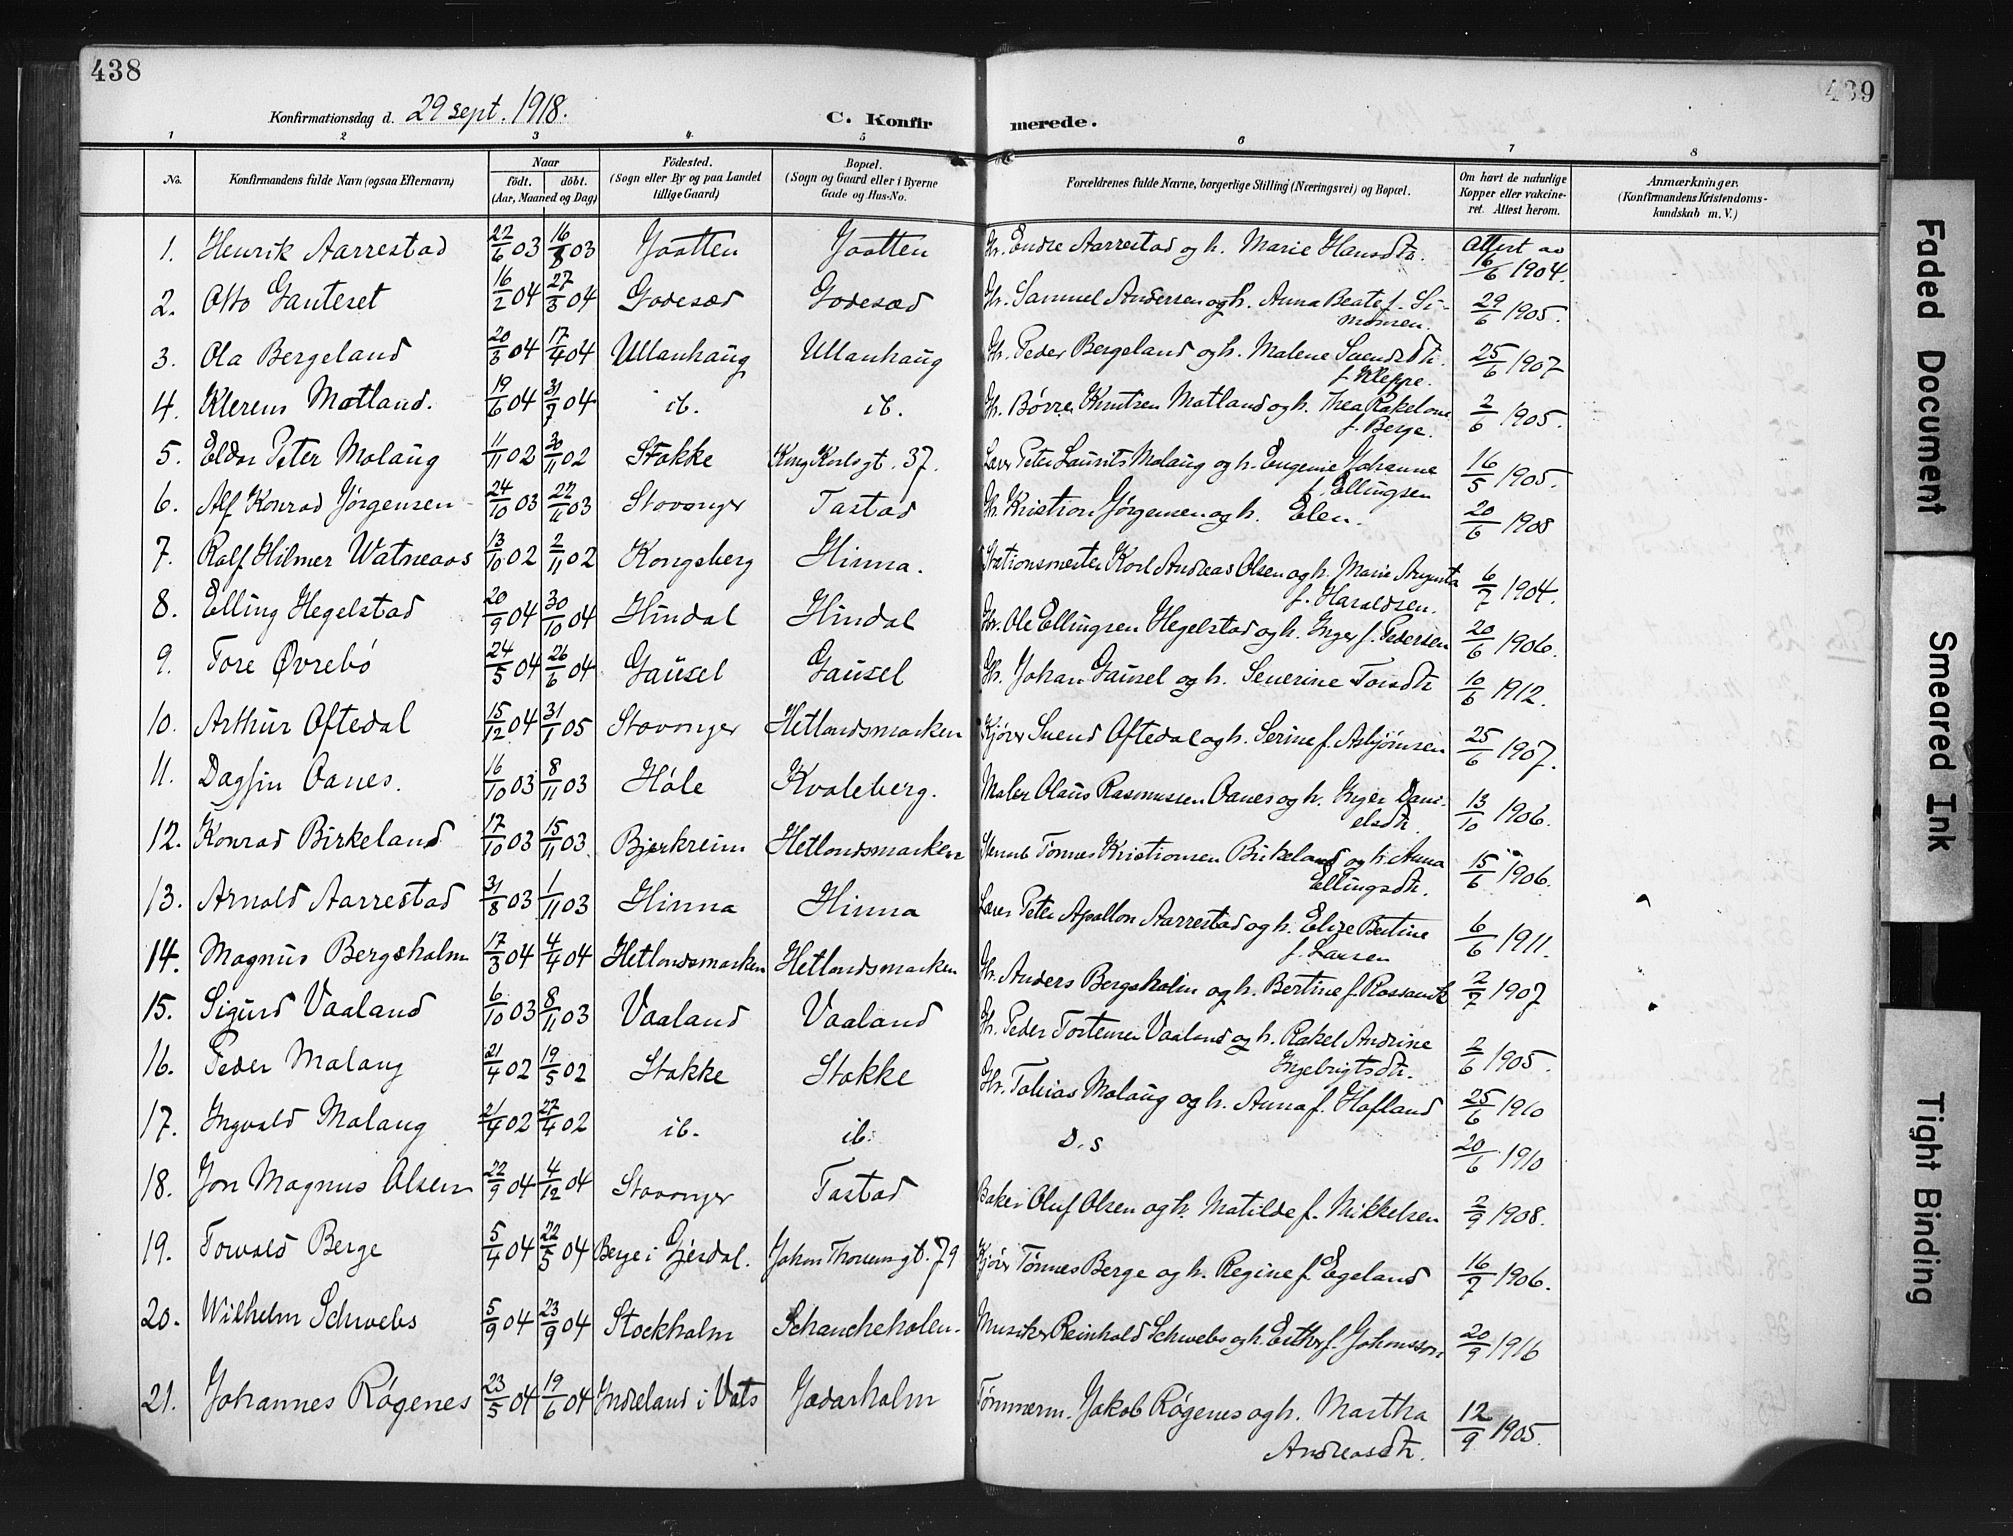 438
439
Konfirmationsdag d. 29 sept. 1918.
C. Konfirmerede.
1 2 3 4 5 6 7 8
No. Konfirmandens fulde Navn (ogsaa Efternavn) Naar født. døbt. (Aar, Maaned og Dag) Fødested. (Sogn eller By og paa Landet tillige Gaard) Bopæl. (Sogn og Gaard eller i Byerne Gade og Hus-No. Forældrenes fulde Navne, borgerlige Stilling (Næringsvei) og Bopæl. Om havt de naturlige Kopper eller vakcineret. Attest herom. Anmærkninger. (Konfirmandens Kristendomskundskab m. V.)
1. Henrik Aarrestad 22/6 03 16/8 03 Jaatten Jaatten Gr. Endre Aarrestad og h. Marie Hansdtr. Attest av 16/6 1904.
2. Otto Gauteset 16/2 04 27/3 04 Godesæd Godesæd Gr. Samuel Andersen og h. Anna Beate f. Simonsen. 29/6 1905.
3. Ola Bergeland 20/3 04 17/4 04 Ullanhaug Ullanhaug Gr. Peder Bergeland og h. Malene Svendsdtr. f. Kleppe. 25/6 1907
4. Klerens Matland. 19/6 04 31/7 04 ib. ib. Gr. Børre Knutsen Matland og h. Thea Rakel f. Berge. 2/6 1905.
5. Eldar Peter Molaug 11/11 02 30/11 02 Stokke Kong Karlsgt. 37. Peter Laurits Molaug og h. Eugenie Johanne f. Ellingsen 16/5 1905.
6. Alf Konrad Jørgensen 24/10 03 22/11 03 Stavanger Tastad Gr. Kristian Jørgensen og h. Elen. 20/6 1908
7. Ralf Hilmer Watneaas 13/10 02 2/11 02 Kongsberg Hinna. Stationsmester Karl Andreas Olsen og h. Marie Augusta f. Haraldsen. 6/7 1904.
8. Elling Hegelstad 20/9 04 30/10 04 Hindal Hindal Gr. Ole Ellingsen Hegelstad og h. Inger f. Pedersen 20/6 1906.
9. Tore Øvrebø 24/5 04 26/6 04 Gausel Gausel Gr. Johan Gausel og h. Severine Torsdtr 10/6 1912.
10. Arthur Oftedal 15/12 04 31/1 05 Stavanger Hetlandsmarken Kjører Svend Oftedal og h. Serine f. Asbjørnsen 25/6 1907.
11. Dagfin Oanes. 16/10 03 8/11 03 Høle Kvaleberg. Maler Olaus Rasmussen Oanes og h. Inger Danielsdtr. 13/10 1906.
12. Konrad Birkeland 17/10 03 15/11 03 Bjerkreim Hetlandsmarken Tønnes Kristiansen Birkeland og h. Anna Ellingsdtr. 15/6 1906.
13. Arnold Aarrestad 31/8 03 1/11 03 Hinna Hinna Peter Apollon Aarrestad og h. Elize Bertine f. Larsen 6/6 1911.
14. Magnus Bergsholm 17/3 04 4/4 04 Hetlandsmarken Hetlandsmarken Gr. Anders Bergsholm og h. Bertine f. 2/7 1907
15. Sigurd Vaaland 6/10 03 8/11 03 Vaaland Vaaland Gr. Peder Tostensen Vaaland og h. Rakel Andrine Ingebrigtsdtr. 2/6 1905.
16. Peder Malaug 21/4 02 19/5 02 Stokke Stokke Gr. Tobias Molaug og h. Anna f. Hafland 25/6 1910
17. Ingvald Malaug 21/4 02 27/4 02 ib. ib. D. s 20/6 1910
18. Jon Magnus Olsen 22/9 04 4/12 04 Stavanger Tastad Baker Oluf Olsen og h. Matilde f. Mikkelsen 2/9 1908.
19. Torvald Berge 5/4 04 22/5 04 Berge i Gjesdal. Johan Thorsensgt. 79 Kjører Tønnes Berge og h. Regine f. Egeland 16/7 1906.
20. Wilhelm Schwebs 5/9 04 23/9 04 Stockholm Schancheholen. Musiker Reinhold Schwebs og h. Esther f. Johansson 20/9 1916
21. Johannes Røgenes 23/5 04 19/6 04 Indreland i Vats Jadarholm Tømmerm. Jakob Røgenes og h. Martha Andreasdtr. 12/9 1905.
Faded Document
Smeared Ink
Tight Binding